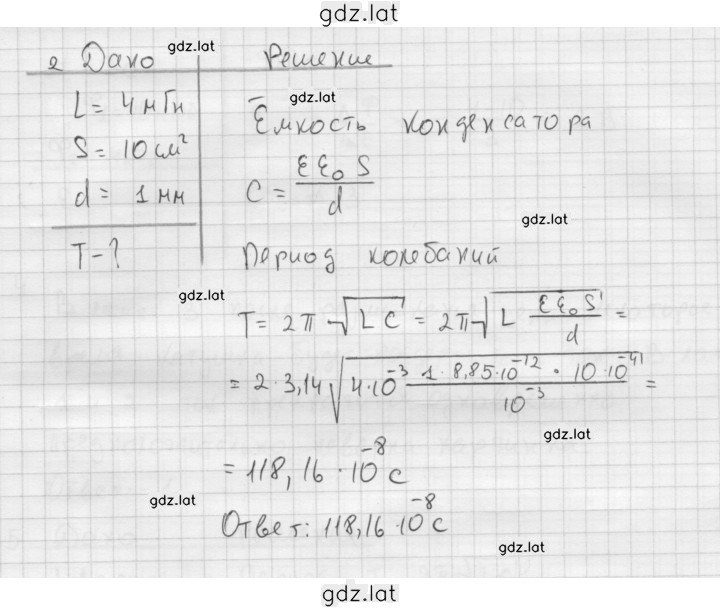 gdz.lat
2 Дано gdz.lat Решение
L = 4 мГн gdz.lat
Ёмкость конденсатора
S = 10 см²
d = 1 мм C = εε₀ S / d
gdz.lat
T - ? Период колебаний
gdz.lat
T = 2π √(L C) = 2π √(L εε₀ S / d) =
= 2 · 3,14 √(4·10⁻³ 1 · 8,85·10⁻¹² · 10·10⁻⁴ / 10⁻³) =
gdz.lat
= 118,16 · 10⁻⁸ с
gdz.lat
Ответ: 118,16·10⁻⁸ с
gdz.lat
gdz.lat